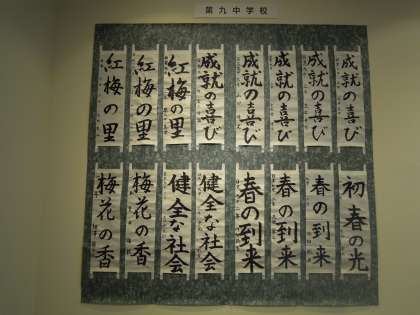 第九中学校
成就の喜び
成就の喜び
成就の喜び
成就の喜び
成就の喜び
紅梅の里
紅梅の里
紅梅の里
初春の光
春の到来
春の到来
春の到来
健全な社会
健全な社会
梅花の香
梅花の香